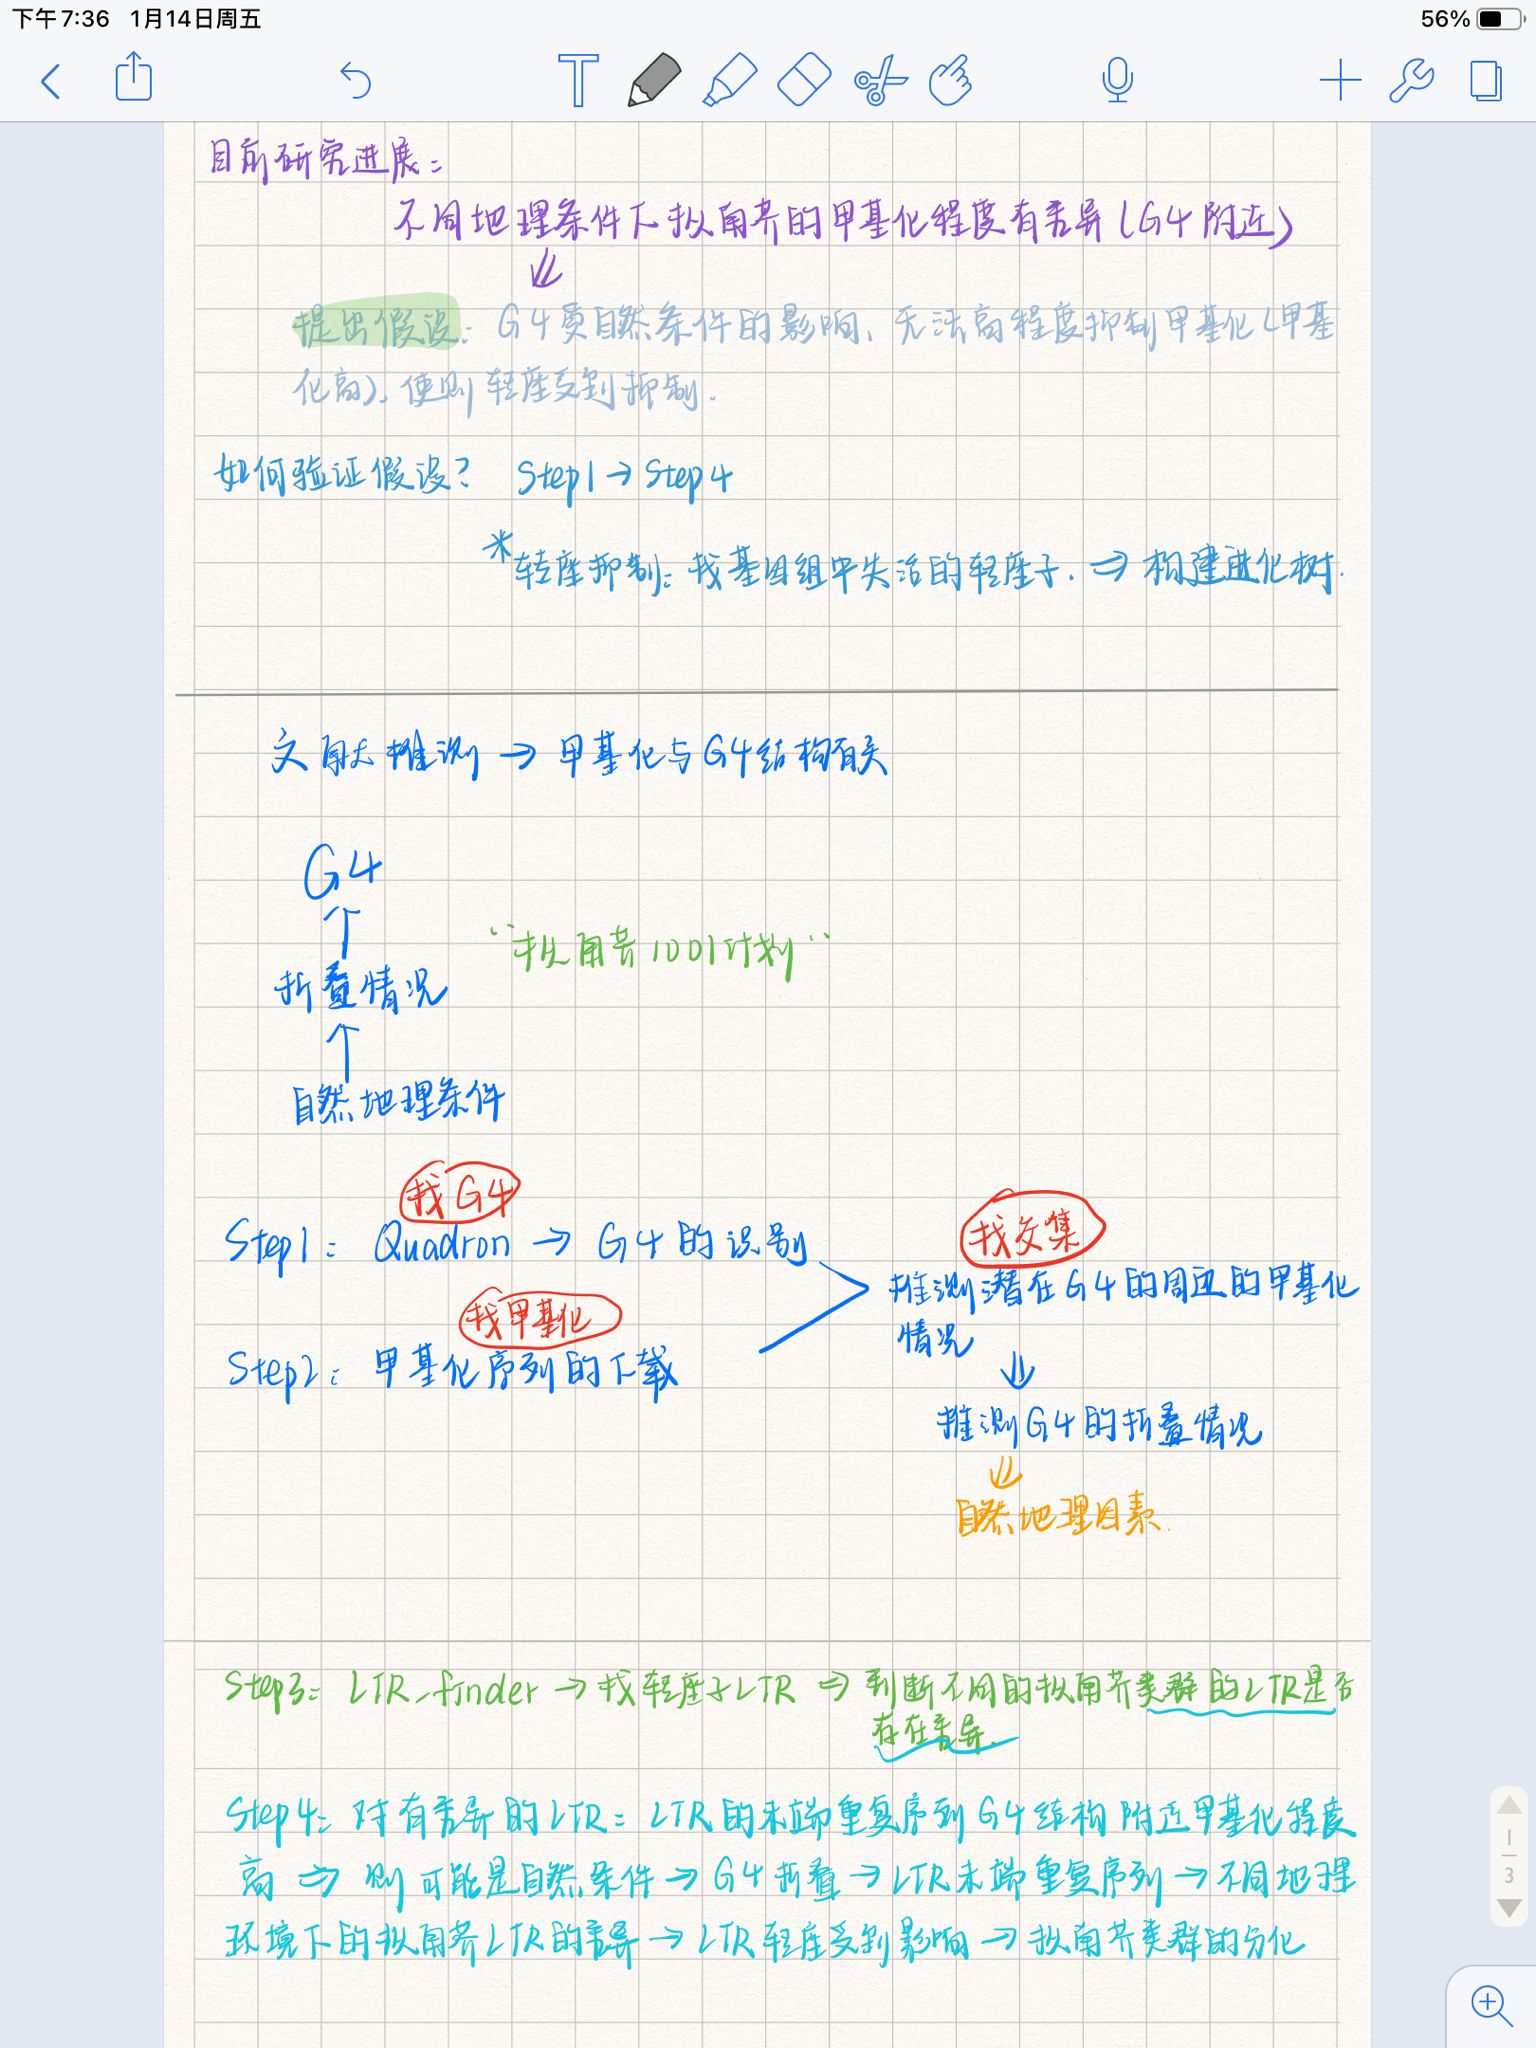 下午7:36 1月14日周五
56%
目前研究进展:
不同地理条件下拟南芥的甲基化程度有差异(G4附近)
提出假设: G4受自然条件的影响、无法高程度抑制甲基化(甲基
化高), 使则转座受到抑制.
如何验证假设? Step1→Step4
*转座抑制: 找基因组中失活的转座子. ⇒ 构建进化树.
文献推测 → 甲基化与G4结构有关
G4
↑
折叠情况
"拟南芥1001计划"
↑
自然地理条件
找G4
Step1: Quadron → G4的识别
找甲基化
Step2: 甲基化序列的下载
找交集
推测潜在G4的周边的甲基化
情况
推测G4的折叠情况
自然地理因素.
Step3: LTR_finder → 找转座子LTR ⇒ 判断不同的拟南芥类群的LTR是否
存在差异.
Step4: 对有差异的LTR: LTR的末端重复序列G4结构附近甲基化程度
高 ⇒ 则可能是自然条件 → G4折叠 → LTR末端重复序列 → 不同地理
环境下的拟南芥LTR的差异 → LTR转座受到影响 → 拟南芥类群的分化
1
3